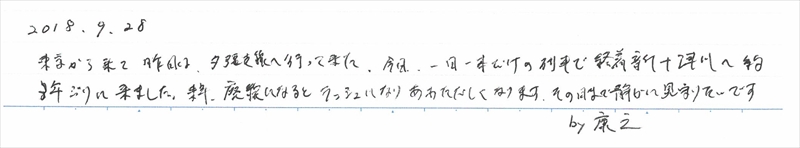 2018.9.28
東京から来て昨日は、夕張支線へ行って来た。今日、一日一本だけの列車で終着新十津川へ約
3年ぶりに来ました。来年、廃線になるとラッシュになりあわただしくなります。その日まで静かに見守りたいです
by 康之